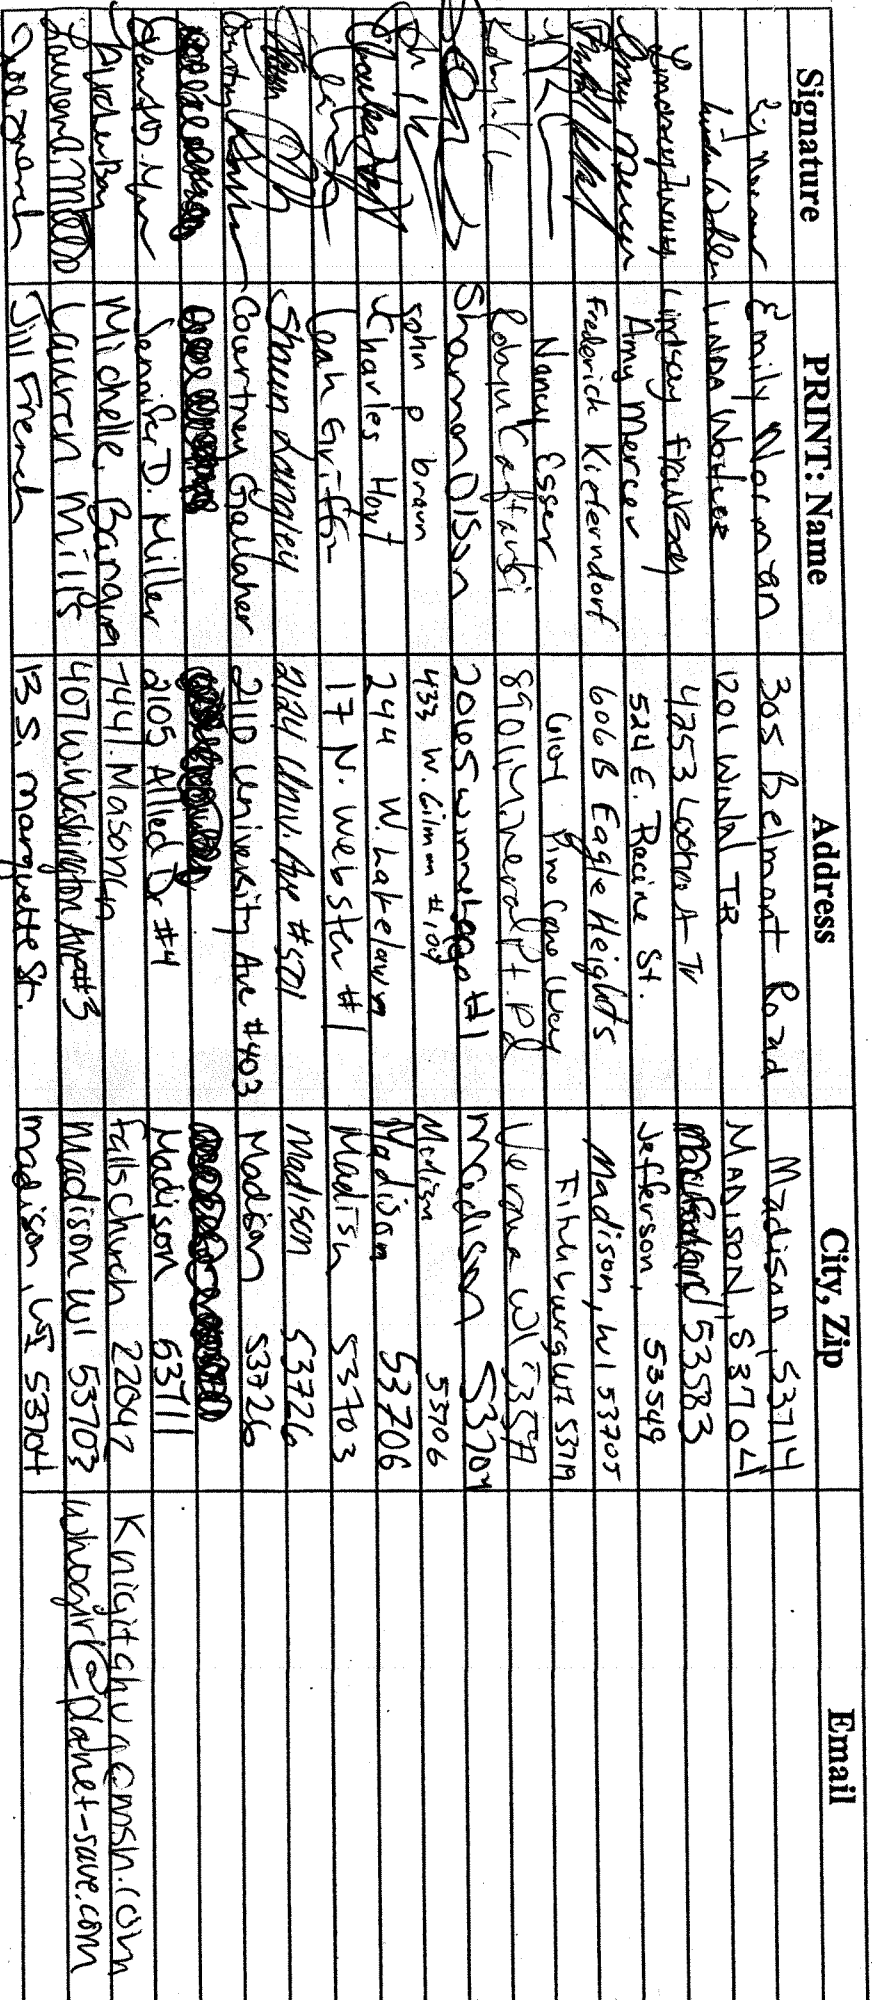 Signature PRINT: Name Address City, Zip Email
Emily Norman 305 Belmont Road Madison, 53714
LINDA 1201 WINDAL TR. MADISON, 53704
Lindsay 4253 Lookout Tr 53583
Amy Mercer Amy Mercer 524 E. Racine St. Jefferson, 53549
Frederich Kieferndorf 606 B Eagle Heights Madison, WI 53705
Nancy Esser Pine Cone Way Fitchburg WI 53719
Robyn 8901 Mineral Pt. Rd Verona WI
Shannon Olson 2016 S Winnebago #1 Madison 53704
John p brown 433 W. Gilman #109 Madison 53706
Charles Hoyt Charles Hoyt 244 W. Lakelawn Madison 53706
Leah Griffin 17 N. Webster #1 Madison 53703
Shaun Langley 2124 Univ. Ave #501 Madison 53726
Courtney Gallaher 2110 University Ave #403 Madison 53726
Jennifer D. Miller 2105 Allied Dr #4 Madison 53711
Michelle 7441 Mason Ln Falls Church 22042
Lauren Mills Lauren Mills 407 W Washington Ave #3 Madison WI 53703 whogirl@planet-save.com
Jill French Jill French 13 S. Marquette St. Madison, WI 53704